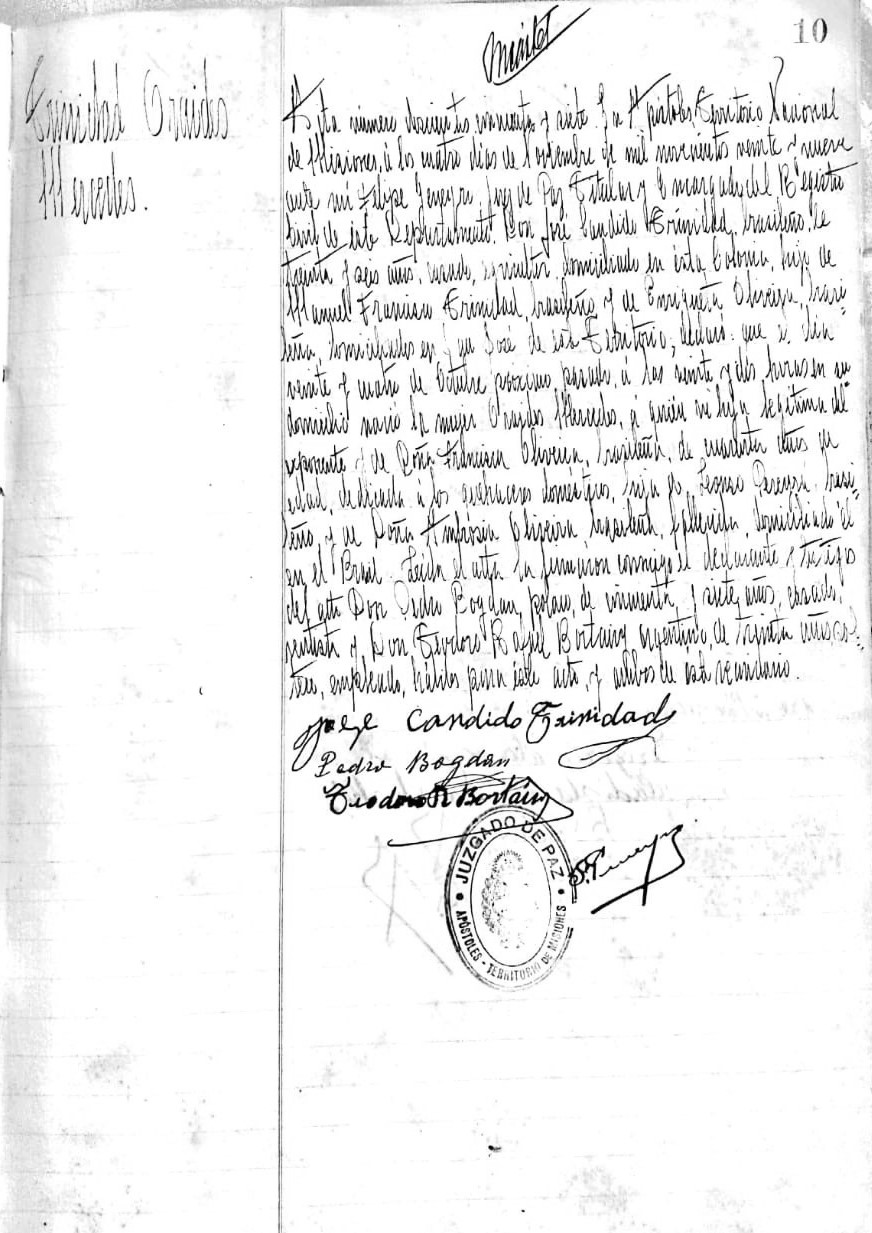 10
Trinidad
Mercedes.
Acta número doscientos cincuenta y siete. En Apóstoles Territorio Nacional
de Misiones, á los cuatro dias de Noviembre de mil novecientos veinte y nueve
ante mi Felipe Juez de Paz Titular y Encargado del Registro
Civil de este Departamento. Don José Candido Trinidad, brasileño, de
treinta y seis años, casado, agricultor, domiciliado en esta Colonia, hijo de
Manuel Francisco Trinidad, brasileño y de Enriqueta Oliveira, brasi-
leña, domiciliados en San José de este Territorio, declaró: que el dia
veinte y cuatro de Octubre próximo pasado, á las veinte y dos horas en su
domicilio nació la mujer Mercedes, hija legitima del
exponente y de Doña Francisca Oliveira, brasileña, de cuarenta años de
edad, dedicada á los quehaceres domésticos, hija de brasi-
leño, y de Doña Ambrosia Oliveira, brasileña, domiciliado el
en el Brasil. Leida el acta la firmaron conmigo el declarante y testigos
del acto Don Pedro Bogdan, polaco, de cincuenta y siete años, casado,
y Don Teodoro Rafael argentino, de treinta años, sol-
tero, empleado, hábiles para este acto, y ambos de este vecindario.
Jose Candido Trinidad
Pedro Bogdan
Teodoro R
JUZGADO DE PAZ
APÓSTOLES - TERRITORIO DE MISIONES